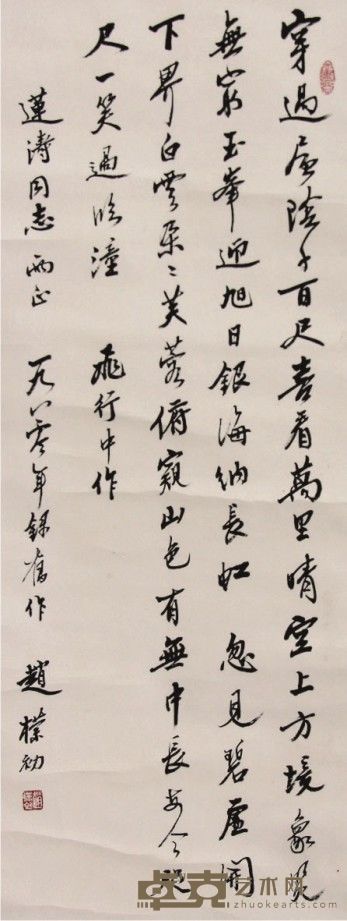 穿過層陰千百尺喜看萬里晴空上方境象
無窮玉峯迎旭日銀海納長虹 忽見碧虛開
下界白雲朵々芙蓉俯窺山色有無中長安今咫
尺一笑過臨潼 飛行中作
蓮濤同志兩正 一九八零年錄舊作 趙樸初
卓克艺术网
www.zhuokearts.com